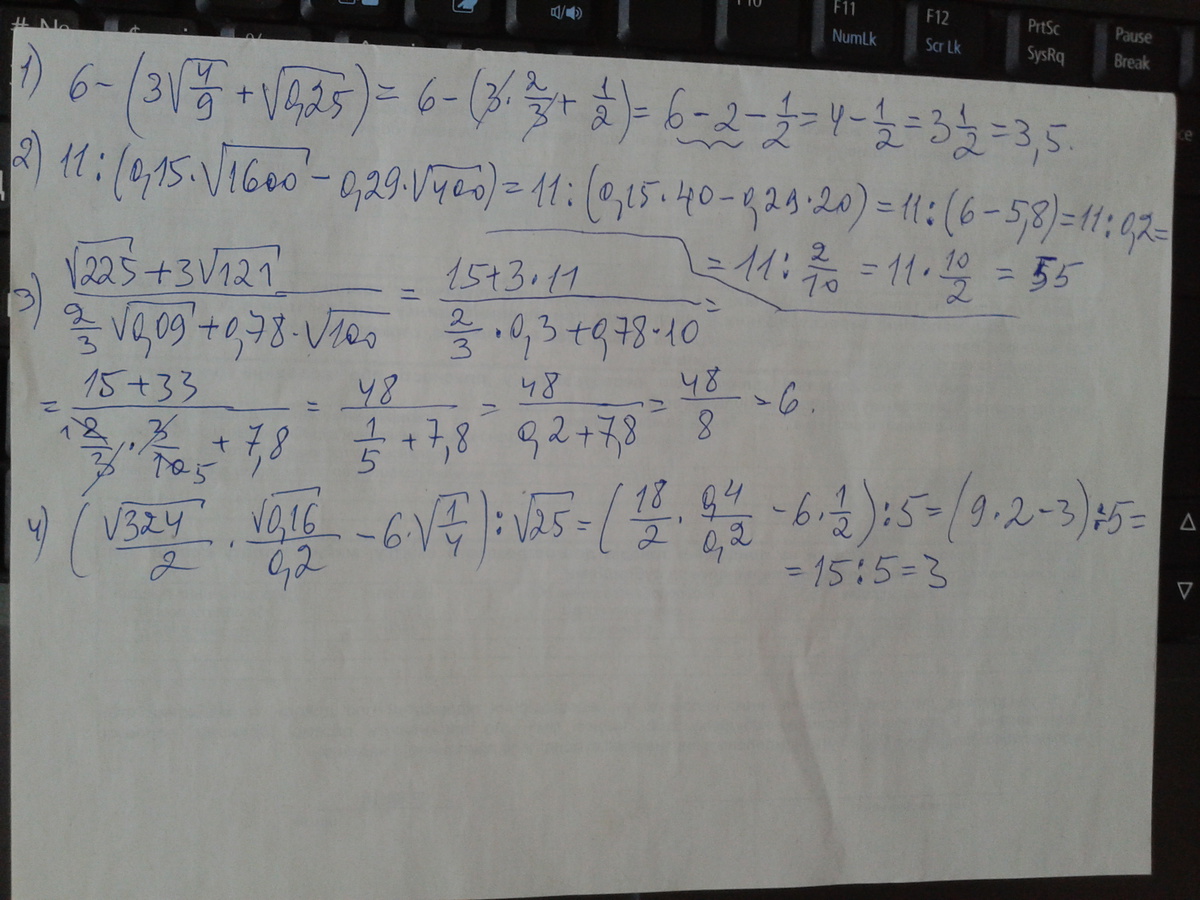 F10 F11 NumLk F12 Scr Lk PrtSc SysRq Pause Break
1) 6-(3√(4/9)+√0,25)=6-(3·2/3+1/2)=6-2-1/2=4-1/2=3 1/2=3,5.
2) 11:(0,15·√1600-0,29·√400)=11:(0,15·40-0,29·20)=11:(6-5,8)=11:0,2=
=11:2/10=11·10/2=55
3) (√225+3√121)/(2/3√0,09+0,78·√100)=(15+3·11)/(2/3·0,3+0,78·10)=
=(15+33)/(2/3·3/10+7,8)=48/(1/5+7,8)=48/(0,2+7,8)=48/8=6.
4) (√324/2·√0,16/0,2-6·√(1/4)):√25=(18/2·0,4/0,2-6·1/2):5=(9·2-3):5=
=15:5=3